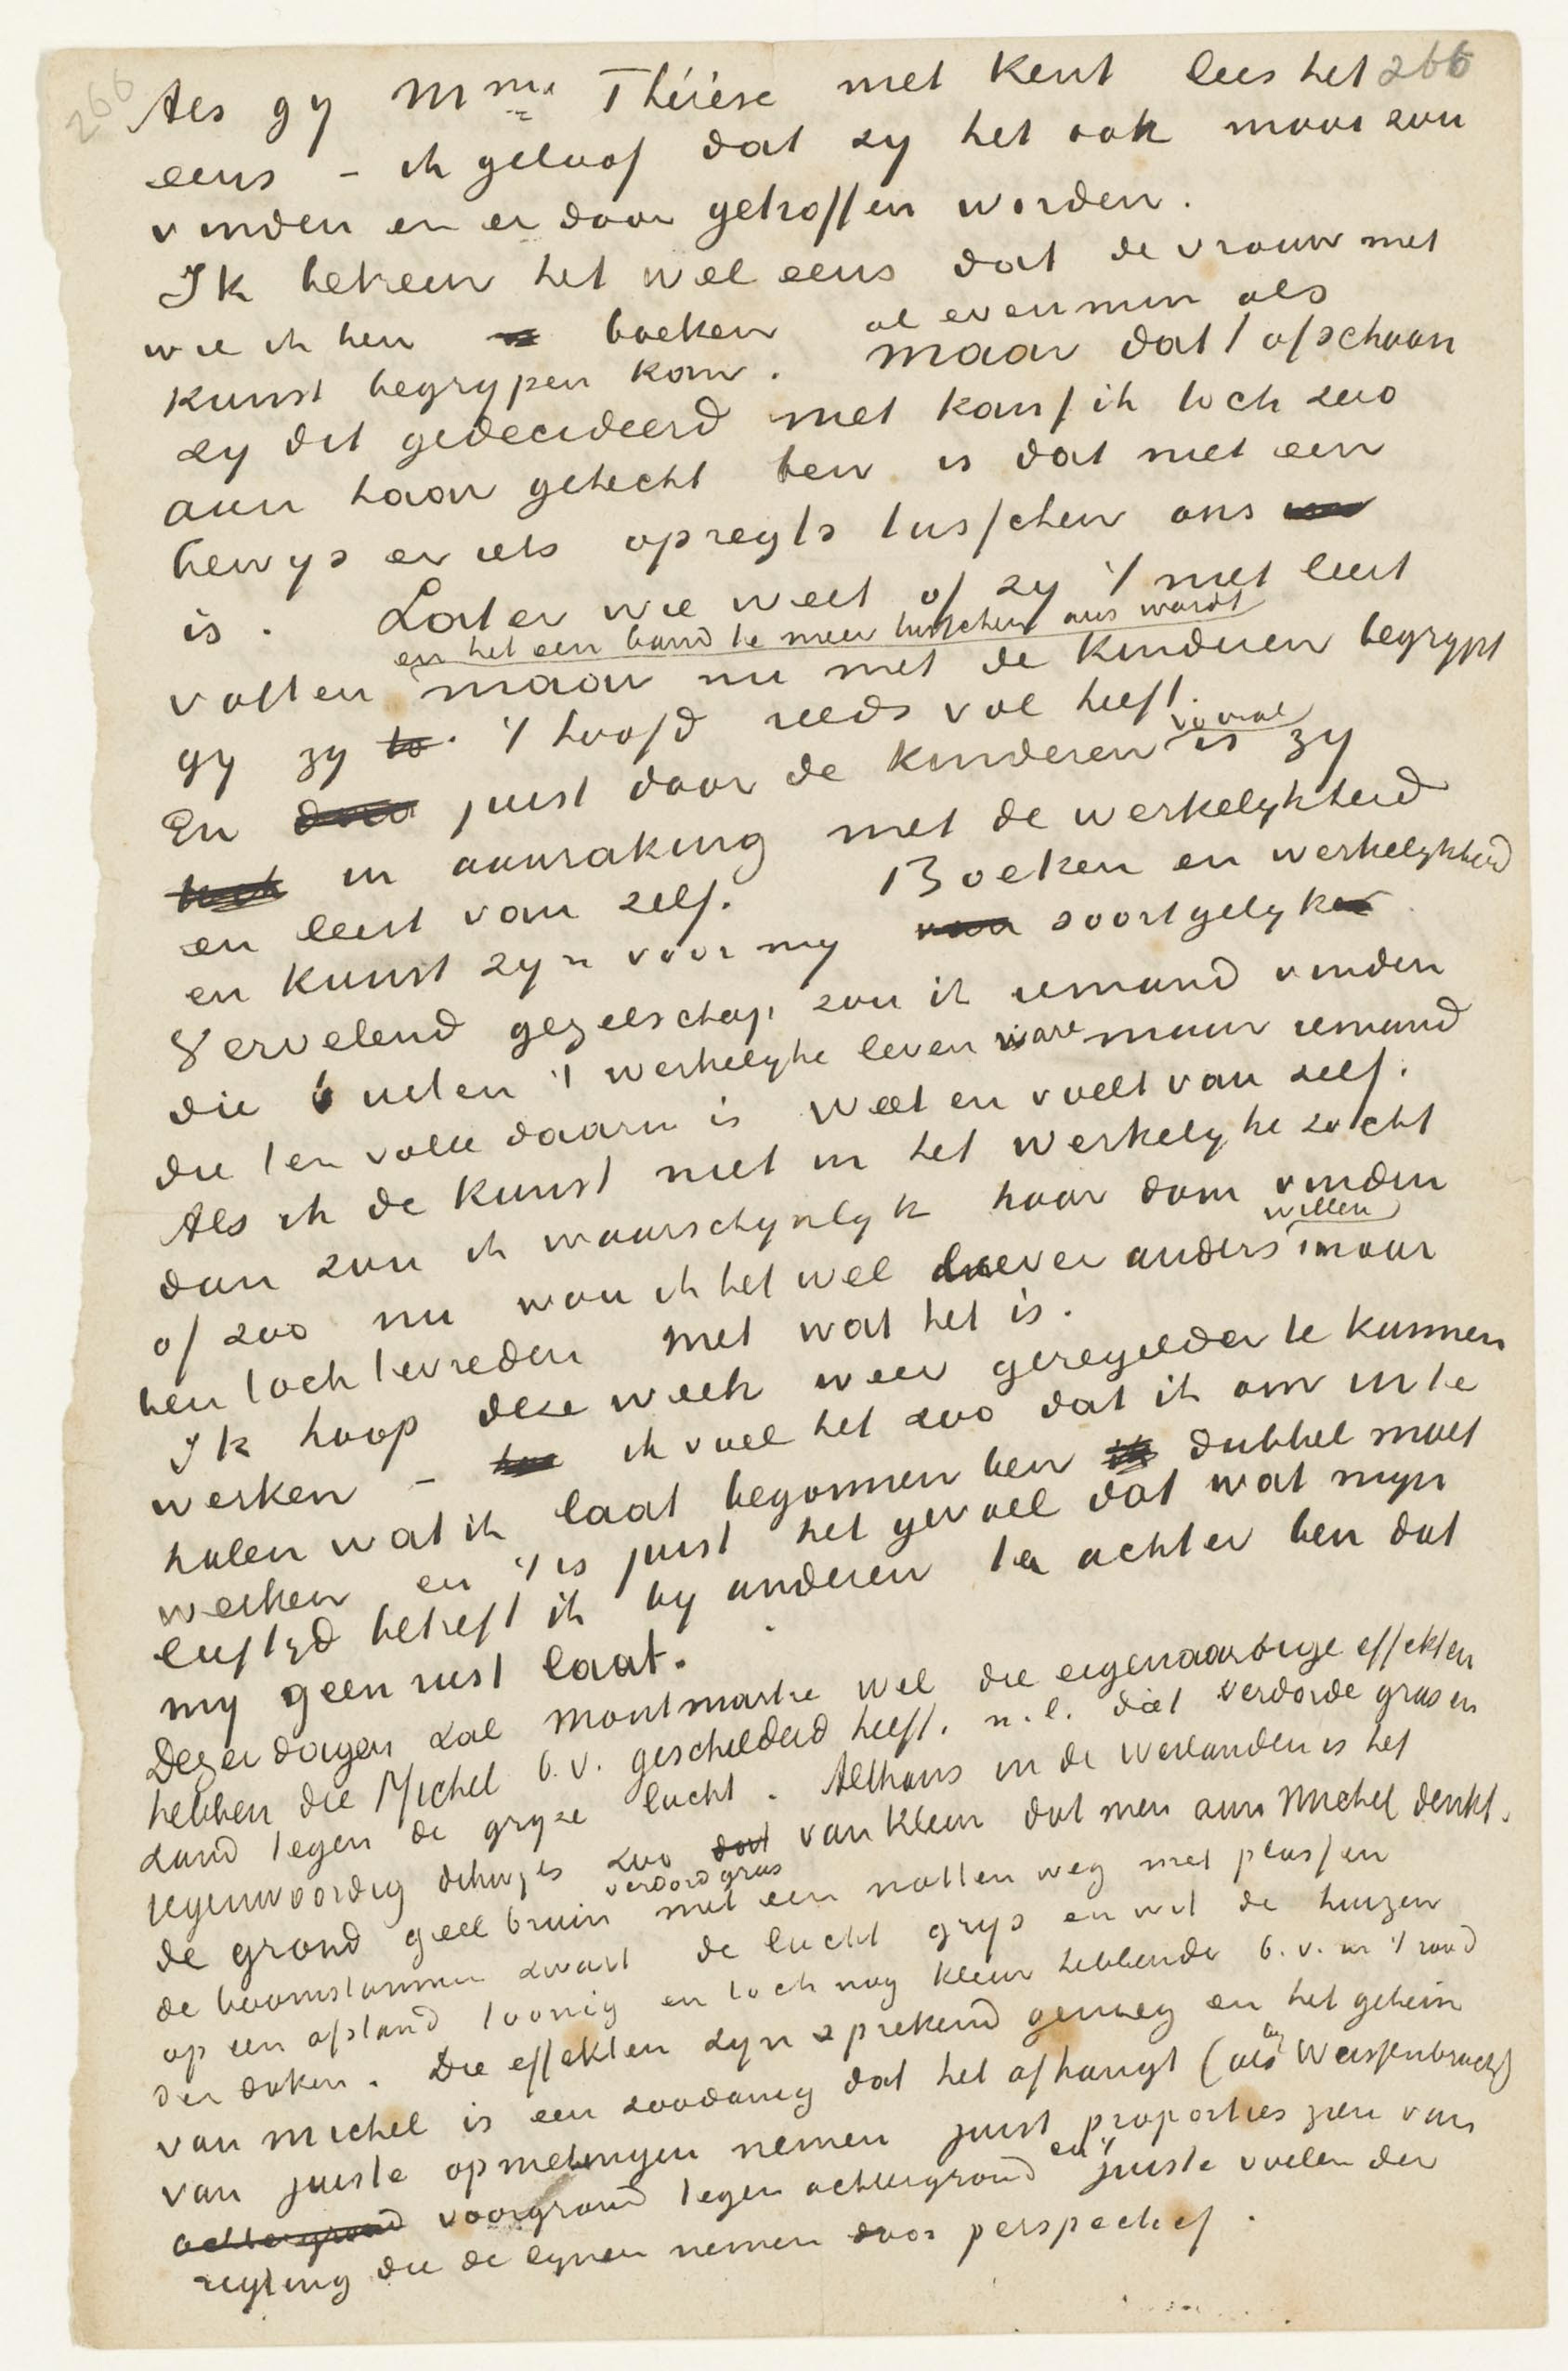 266
Als gy Mme Thérèse niet kent lees het 266
eens – ik geloof dat zy het ook mooi zou
vinden en er door getroffen worden.
Ik betreur het wel eens dat de vrouw met
wie ik ben boeken al evenmin als
kunst begrypen kan. Maar dat/ofschoon
zy dit gedecideerd niet kan/ik toch zoo
aan haar gehecht ben is dat niet een
bewys er iets opregts tusschen ons
is. Later wie weet of zy 't niet leert
en het een band te meer tusschen ons wordt
vatten maar nu met de kinderen begrypt
gy zy 't hoofd reeds vol heeft.
En juist door de kinderen vooral is zy
in aanraking met de werkelykheid
en leert van zelf. Boeken en werkelykheid
en kunst zyn voor my soortgelyk
Vervelend gezelschap zou ik iemand vinden
die buiten 't werkelyke leven ware maar iemand
die ten volle daarin is weet en voelt van zelf.
Als ik de kunst niet in het werkelyke zocht
dan zou ik waarschynlyk haar dom vinden
of zoo nu wou ik het wel liever anders willen maar
ben toch tevreden met wat het is.
Ik hoop deze week weer geregelder te kunnen
werken – ik voel het zoo dat ik om in te
halen wat ik laat begonnen ben dubbel moet
werken en 't is juist het gevoel dat wat myn
leeftyd betreft ik by anderen ten achter ben dat
my geen rust laat.
Dezer dagen zal Montmartre wel die eigenaardige effekten
hebben die Michel b.v. geschilderd heeft. n.l. dat verdorde gras en
zand tegen de gryze lucht. Althans in de weilanden is het
tegenwoordig dikwyls zoo van kleur dat men aan Michel denkt.
de grond geel bruin verdord gras met een natten weg met plassen
de boomstammen zwart de lucht grys en wit de huizen
op een afstand toonig en toch nog kleur hebbende b.v. in 't rood
der daken. Die effekten zyn sprekend genoeg en het geheim
van Michel is een zoodanig dat het afhangt (als by Weissenbruch)
van juiste opmetingen nemen juist proporties zien van
achtergrond voorgrond tegen achtergrond en 't juiste voelen der
rigting die de lynen nemen door perspectief.